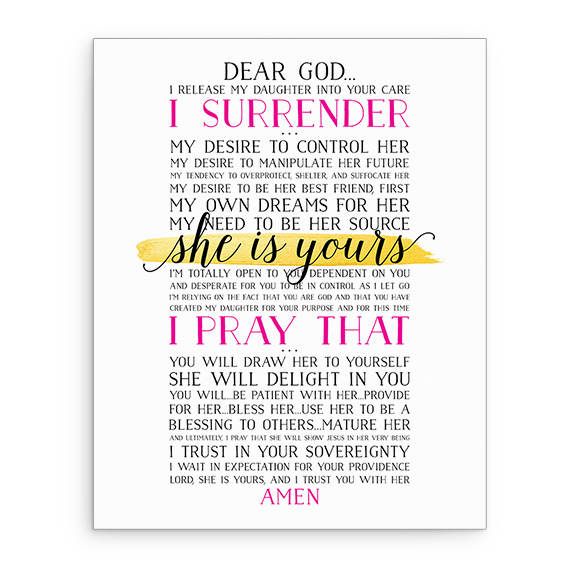 DEAR GOD...
I RELEASE MY DAUGHTER INTO YOUR CARE
I SURRENDER
...
MY DESIRE TO CONTROL HER
MY DESIRE TO MANIPULATE HER FUTURE
MY TENDENCY TO OVERPROTECT, SHELTER, AND SUFFOCATE HER
MY DESIRE TO BE HER BEST FRIEND, FIRST
MY OWN DREAMS FOR HER
MY NEED TO BE HER SOURCE
she is yours
I'M TOTALLY OPEN TO YOU DEPENDENT ON YOU
AND DESPERATE FOR YOU TO BE IN CONTROL AS I LET GO
I'M RELYING ON THE FACT THAT YOU ARE GOD AND THAT YOU HAVE
CREATED MY DAUGHTER FOR YOUR PURPOSE AND FOR THIS TIME
I PRAY THAT
...
YOU WILL DRAW HER TO YOURSELF
SHE WILL DELIGHT IN YOU
YOU WILL...BE PATIENT WITH HER...PROVIDE
FOR HER...BLESS HER...USE HER TO BE A
BLESSING TO OTHERS...MATURE HER
AND ULTIMATELY, I PRAY THAT SHE WILL SHOW JESUS IN HER VERY BEING
I TRUST IN YOUR SOVEREIGNTY
I WAIT IN EXPECTATION FOR YOUR PROVIDENCE
LORD, SHE IS YOURS, AND I TRUST YOU WITH HER
AMEN